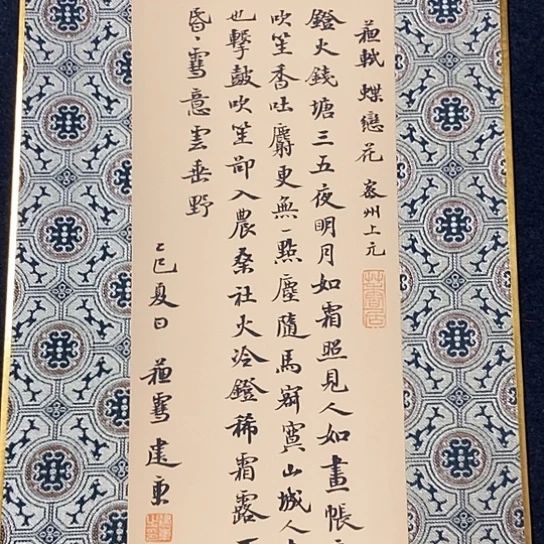 蘇軾 蝶戀花 密州上元
鐙火錢塘三五夜明月如霜照見人如畫帳
吹笙香吐麝更無一點塵隨馬寂寞山城人
也擊鼓吹笙卻入農桑社火冷鐙稀霜露
昏〻雪意雲垂野
乙巳夏日 蘇雪建